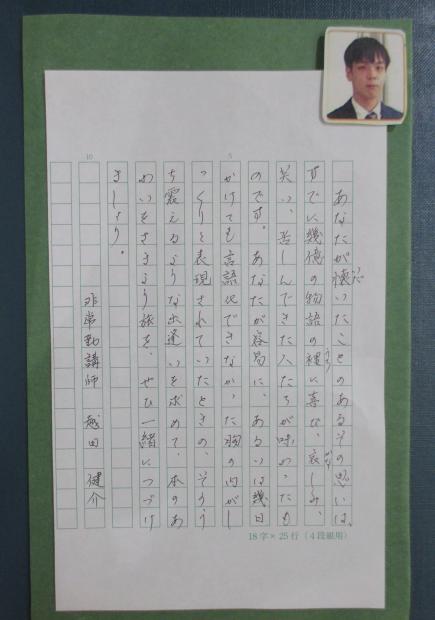 あなたが懐いたことのあるその思いは、
いだ
すでに幾億の物語の裡に喜び、哀しみ、
うち
かな
笑い、苦しんできた人たちが味わったも
のです。あなたが容易に、あるいは幾日
かけても言語化できなかった胸の内がし
5
っくりと表現されていたときの、そのう
ち震えるような出逢いを求めて、本のあ
わいをさまよう旅を、ぜひ一緒につづけ
ましょう。
10
非常勤講師 越田 健介
18字×25行(4段組用)